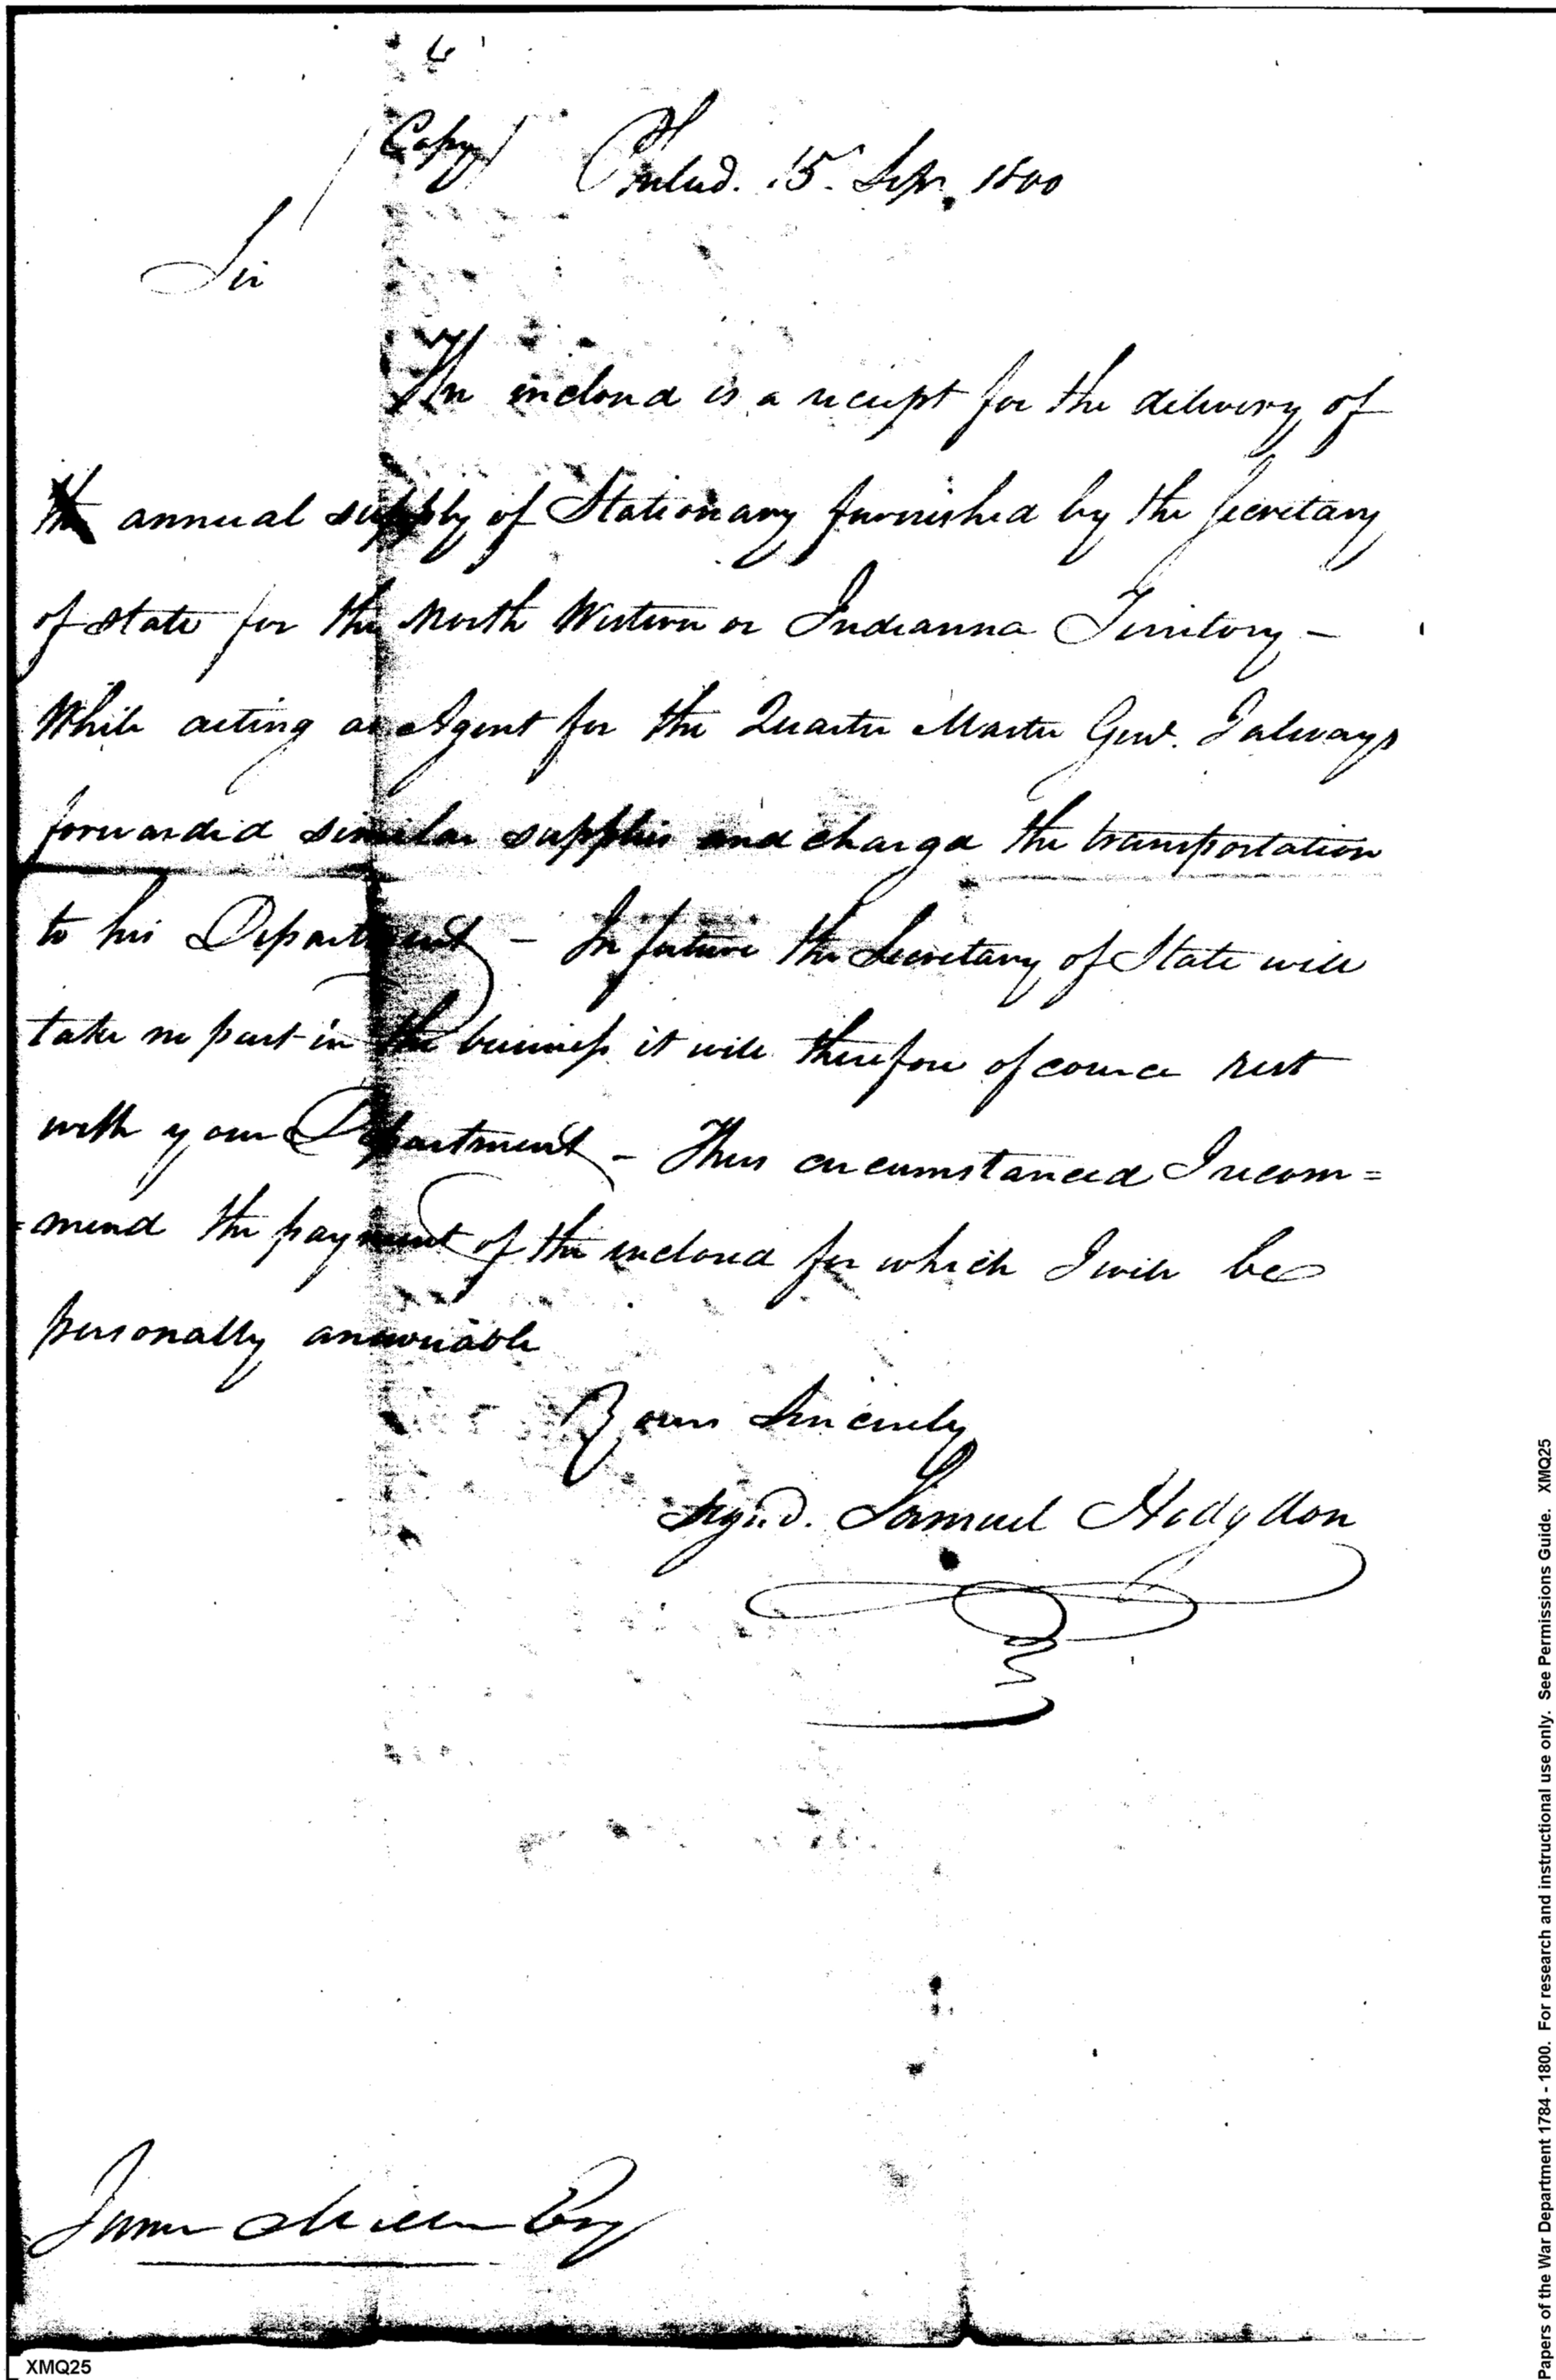 Copy
Philad. 15. Sepr. 1800
Sir
The inclosed is a receipt for the delivery of
the annual supply of Stationary furnished by the Secretary
of State for the North Western or Indianna Territory –
While acting as Agent for the Quarter Master Genl. I always
forwarded similar supplies and charged the transportation
to his Department – In future the Secretary of State will
take no part in the business it will therefore of cource rest
with your Department – Thus circumstanced I recom=
=mend the payment of the inclosed for which I will be
personally answerable
Yours Sincerely
Signd. Samuel Hodgdon
James Miller Esq
XMQ25
Papers of the War Department 1784 - 1800. For research and instructional use only. See Permissions Guide. XMQ25